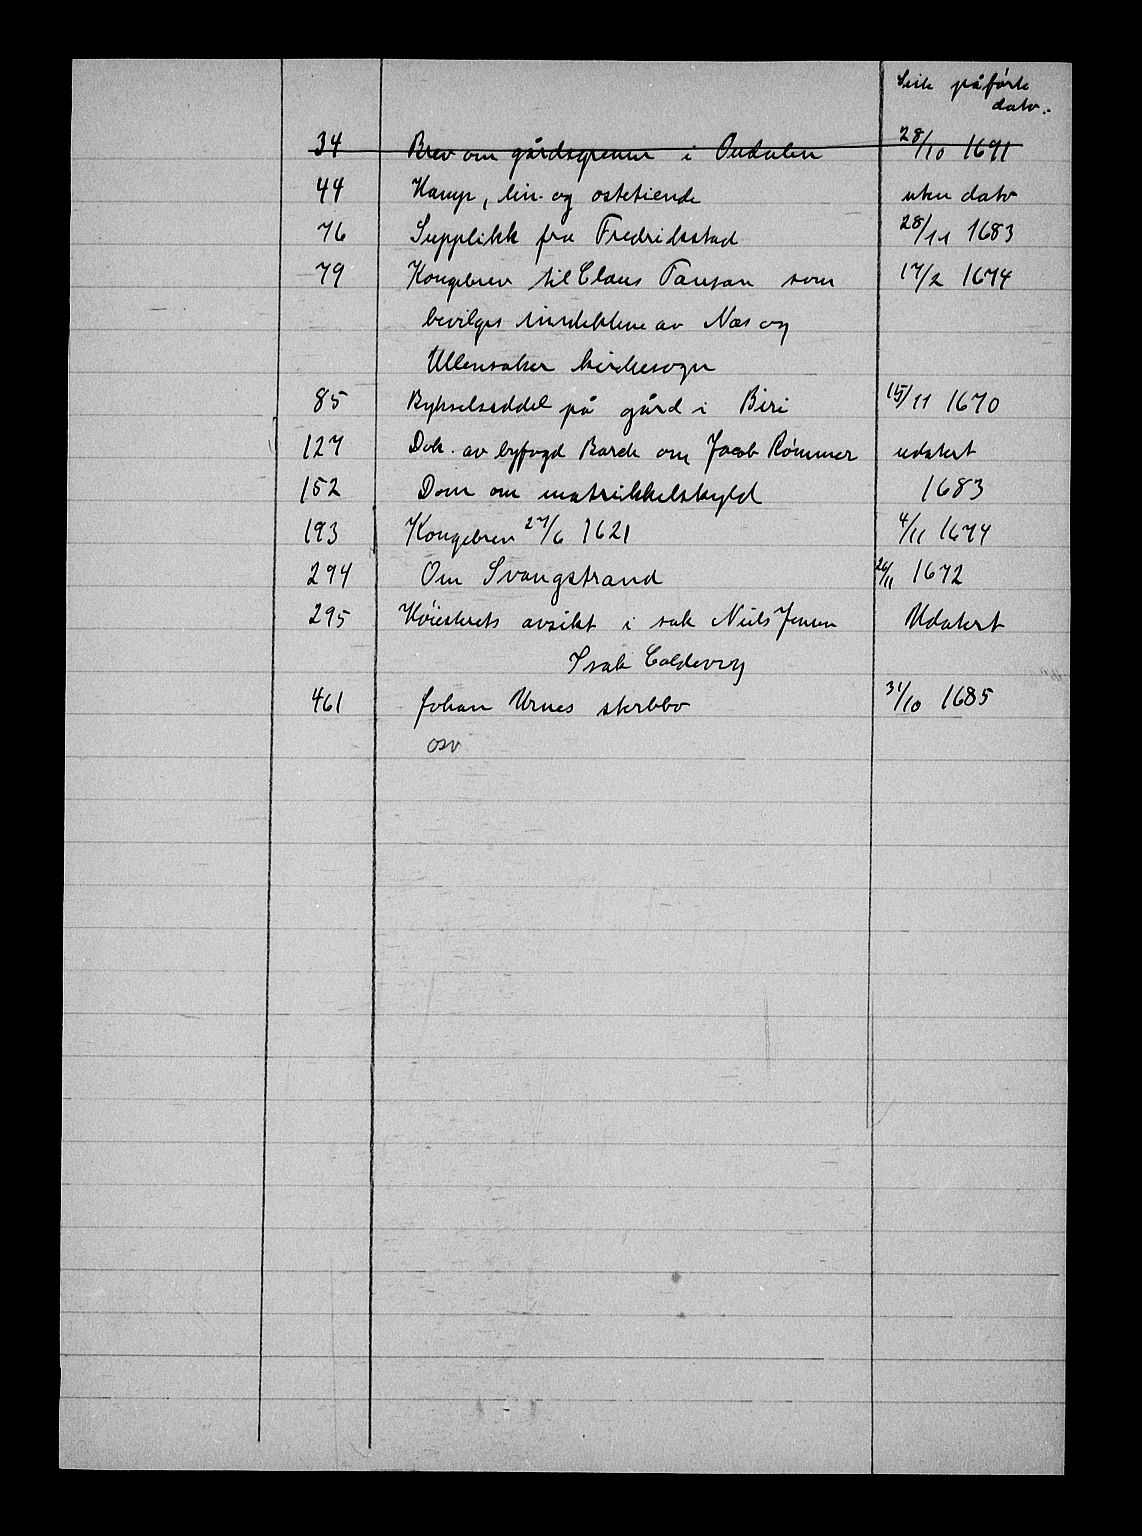 Sist påførte
dato.
34 Brev om gårdsgrenser i Oudalen 28/10 1691
44 Hamp, lin- og ostetiende uten dato
76 Supplikk fra Fredrikstad 28/11 1683
79 Kongebrev til Claus Pansan som 17/2 1674
bevilges inntektene av Næs og
Ullensaker kirkesogn
85 Bykselseddel på gård i Biri 15/11 1670
127 Dok. av byfogd Borch om Jacob Rømmer udatert
152 Dom om matrikkelskyld 1683
193 Kongebrev 27/6 1621 4/11 1674
294 Om Svangstrand 26/11 1672
295 Høiesterets avsikt i sak Niels Jensen Udatert
Isak Coldevey
461 Johan Urnes sterbbo 31/10 1685
osv